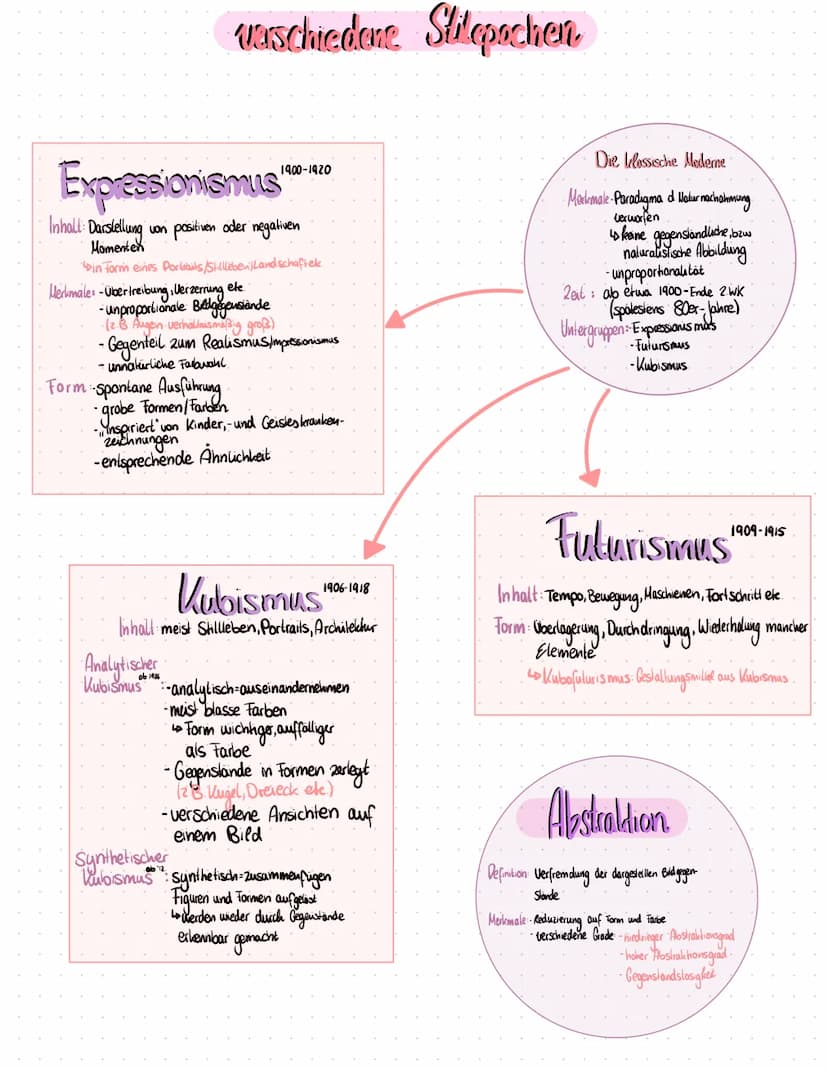 verschiedene Stilepochen
Die klassische Moderne
Merkmale: -Paradigma d. Naturnachahmung
verworfen
↳ keine gegenständliche, bzw
naturalistische Abbildung
- unproportionalität
Zeit: ab etwa 1900 - Ende 2.WK
(spätestens 80er-Jahre)
Untergruppen: - Expressionismus
- Futurismus
- Kubismus
Expressionismus 1900-1920
Inhalt: Darstellung von positiven oder negativen
Momenten
↳ in Form eines Portraits/Stillleben/Landschaft etc
Merkmale: - Übertreibung, Verzerrung etc
- unproportionale Bildgegenstände
(z.B. Augen verhältnismäßig groß)
- Gegenteil zum Realismus/Impressionismus
- unnatürliche Farbwahl
Form: - spontane Ausführung
- grobe Formen/Farben
- "inspiriert" von Kinder,- und Geisteskranken-
zeichnungen
- entsprechende Ähnlichkeit
Futurismus 1909-1915
Inhalt: Tempo, Bewegung, Maschienen, Fortschritt etc
Form: Überlagerung, Durchdringung, Wiederholung mancher
Elemente
↳ Kubofuturismus: Gestaltungsmittel aus Kubismus
Kubismus 1906-1918
Inhalt: meist Stillleben, Portraits, Architektur
Analytischer
Kubismus ab 1906: - analytisch = auseinandernehmen
- meist blasse Farben
↳ Form wichtiger, auffälliger
als Farbe
- Gegenstände in Formen zerlegt
(z.B. Kugel, Dreieck etc.)
- verschiedene Ansichten auf
einem Bild
Synthetischer
Kubismus ab '12: synthetisch = zusammenfügen
Figuren und Formen aufgelöst
↳ werden wieder durch Gegenstände
erkennbar gemacht
Abstraktion
Definition: Verfremdung der dargestellten Bildgegen-
stände
Merkmale: - Reduzierung auf Form und Farbe
- verschiedene Grade - niedriger Abstraktionsgrad
- hoher Abstraktionsgrad
- Gegenstandslosigkeit